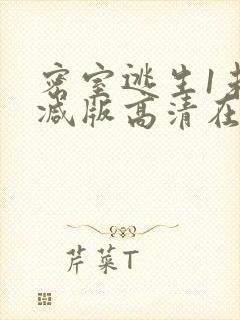 密室逃生1未
减版高清在
芹菜T